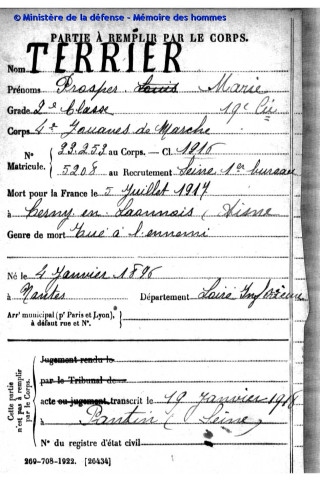 © Ministère de la défense - Mémoire des hommes
PARTIE À REMPLIR PAR LE CORPS.
Nom TERRIER
Prénoms Prosper Louis Marie
Grade 2e Classe 19e Cie
Corps 4e Zouaves de Marche
N° 23.253 au Corps. — Cl. 1916
Matricule. 5208 au Recrutement Seine 1er bureau
Mort pour la France le 5 Juillet 1917
à Cerny en Laonnois (Aisne
Genre de mort Tué à l'ennemi
Né le 4 Janvier 1896
à Nantes Département Loire Inférieure
Arr' municipal (p' Paris et Lyon),
à défaut rue et N°.
Cette partie
n'est pas à remplir
par le Corps.
Jugement rendu le
par le Tribunal de
acte ou jugement transcrit le 19 Janvier 1918
à Pantin (Seine)
N° du registre d'état civil
269-708-1922. [26434]